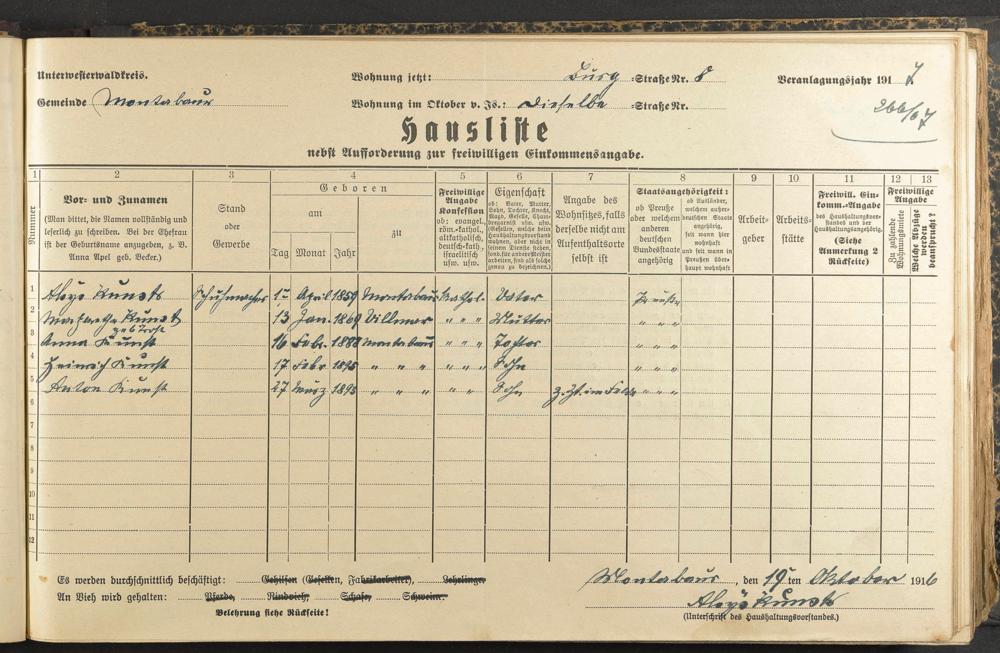 Unterwesterwaldkreis. Wohnung jetzt: Burg =Straße Nr. 8 Veranlagungsjahr 1917
Gemeinde Montabaur Wohnung im Oktober v. Js.: Dieselbe =Straße Nr.
266/67
Hausliste
nebst Aufforderung zur freiwilligen Einkommensangabe.
1 2 3 4 5 6 7 8 9 10 11 12 13
Nummer
Vor- und Zunamen
(Man bittet, die Namen vollständig und
leserlich zu schreiben. Bei der Ehefrau
ist der Geburtsname anzugeben, z. B.
Anna Apel geb. Becker.)
Stand
oder
Gewerbe
Geboren
am
Tag Monat Jahr
zu
Freiwillige
Angabe
Konfession
ob: evangel.,
röm.-kathol.,
altkatholisch,
deutsch-kath.,
israelitisch
usw. usw.
Eigenschaft
ob: Vater, Mutter,
Sohn, Tochter, Knecht,
Magd, Geselle,
usw.
(Gesellen, welche beim
Haushaltungsvorstand
wohnen, aber nicht in
seinen Diensten stehen,
sond. für andere Meister
arbeiten, sind als solche
genau zu bezeichnen.)
Angabe des
Wohnsitzes, falls
derselbe nicht am
Aufenthaltsorte
selbst ist
Staatsangehörigkeit:
ob Preuße
oder welchem
anderen
deutschen
Bundesstaate
angehörig
ob Ausländer,
welchem außer-
deutschen Staate
angehörig,
seit wann hier
wohnhaft
und seit wann in
Preußen über-
haupt wohnhaft
Arbeit-
geber
Arbeits-
stätte
Freiwill. Ein-
komm.-Angabe
des Haushaltungsvor-
standes und der
Haushaltungsangehörig.
(Siehe
Anmerkung 2
Rückseite)
Freiwillige
Angabe
Zu zahlende
Wohnungsmiete
Welche Abzüge
werden
beansprucht?
1 Aloys Kunst Schuhmacher 1. April 1859 Montabaur Kathol. Vater Preuße
2 Margarethe Kunst 13 Jan. 1869 Villmar " " Mutter " " "
geb. Trost
3 Anna Kunst 16 Febr. 1888 Montabaur " " " Tochter " " "
4 Heinrich Kunst 17 Febr 1895 " " " " " " Sohn " " "
5 Anton Kunst 27 März 1898 " " " " " Sohn z. Zt. im Felde " " "
6
7
8
9
10
11
12
Es werden durchschnittlich beschäftigt: Gehilfen (Gesellen, Fabrikarbeiter), Lehrlinge.
An Vieh wird gehalten: Pferde, Rindvieh, Schafe, Schweine.
Belehrung siehe Rückseite!
Montabaur, den 19ten Oktober 1916
Aloys Kunst
(Unterschrift des Haushaltungsvorstandes.)